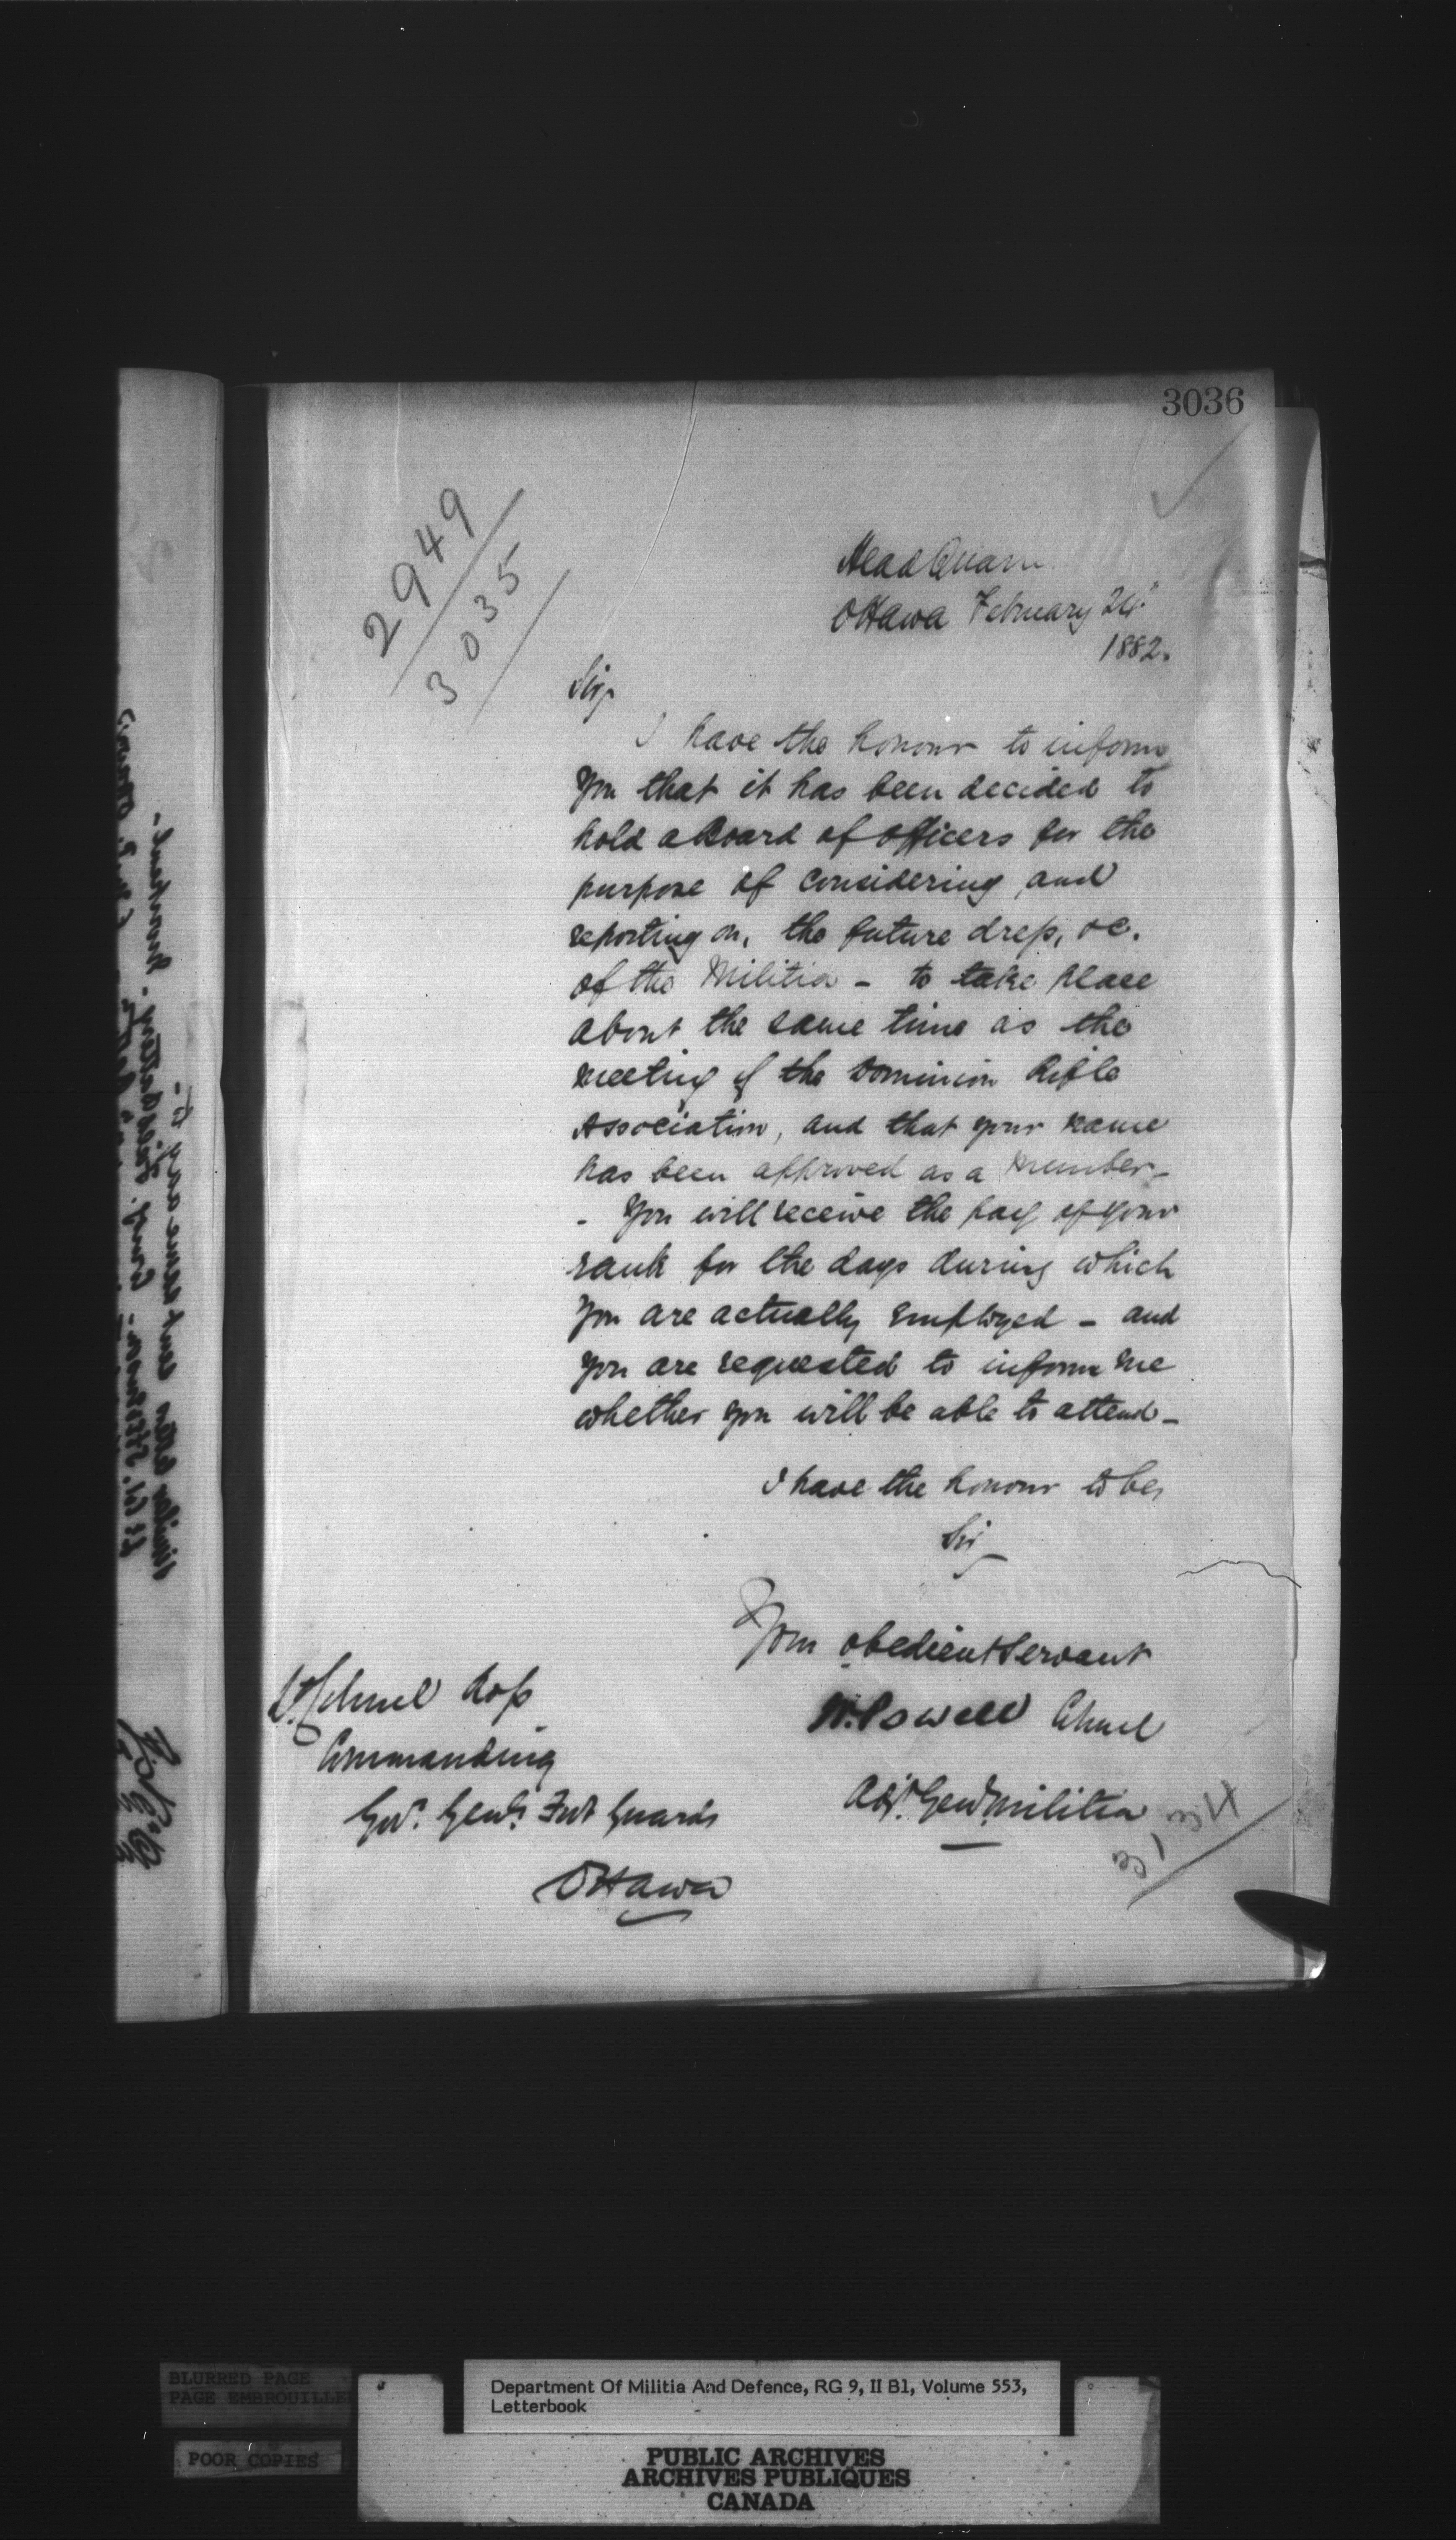 3036
2949
3035
Head Quar
Ottawa February 24.
1882.
Sir,
I have the honour to inform
you that it has been decided to
hold a Board of Officers for the
purpose of considering and
reporting on, the future dress, &c.
of the Militia - to take place
about the same time as the
meeting of the Dominion Rifle
Association, and that your name
has been approved as a Member -
- You will receive the pay of your
rank for the days during which
you are actually employed - and
you are requested to inform me
whether you will be able to attend -
I have the honour to be,
Sir
Your obedient Servant
W. Powell Colonel
Adjt. Genl. Militia
Lt. Colonel Ross
Commanding
Gov. Genl's Foot Guards
Ottawa
3134
BLURRED PAGE
PAGE EMBROUILLEE
POOR COPIES
Department Of Militia And Defence, RG 9, II B1, Volume 553,
Letterbook
PUBLIC ARCHIVES
ARCHIVES PUBLIQUES
CANADA